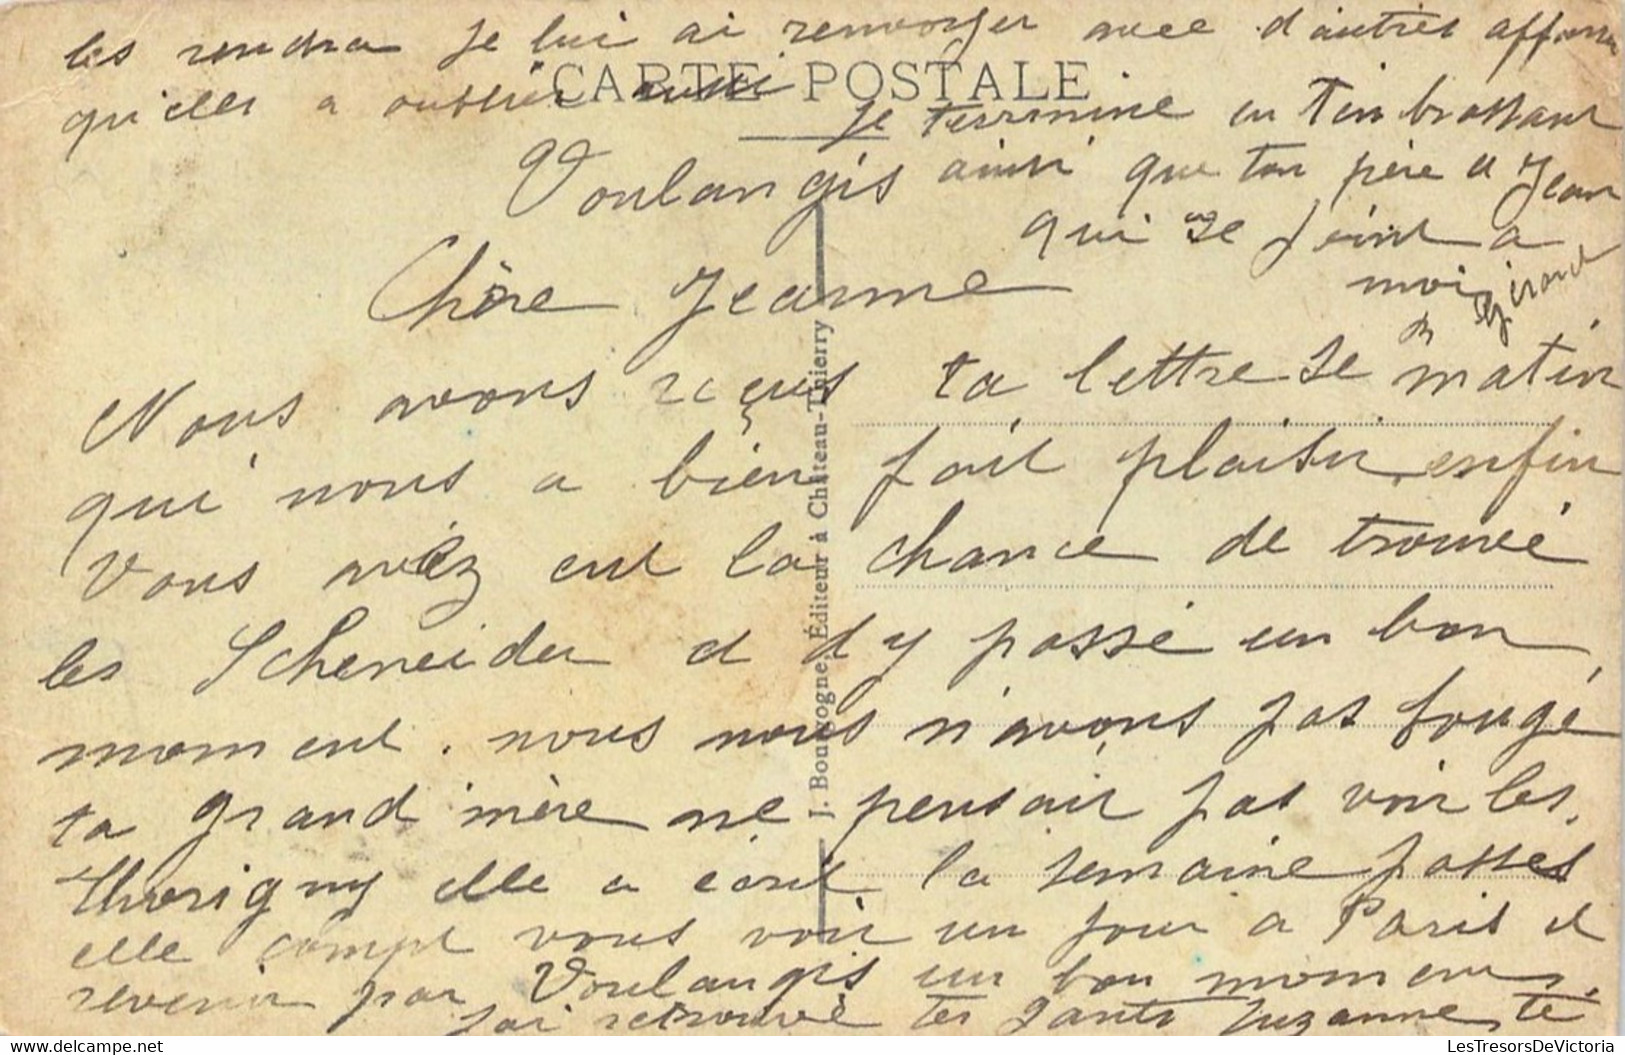 les rendra Je lui ai renvoyer avec d'autres affaires
CARTE POSTALE
qu'elles a oublier aussi
Je terrmine en t'embrassant
Voulangis
ainsi que ton père et Jean
qui se joint a
moi
Girard
Chère Jeanne
Nous avons reçus ta lettre se matin
qui nous a bien fait plaisir enfin
Vous avez eut la chance de trouvé
les Scheneider et d'y passé un bon
moment. nous nous n'avons pas bougé
ta grand mère ne pensait pas voir les
Thorigny elle a écrit la semaine passée
elle compt vous voir un jour a Paris et
revenir par Voulangis un bon moment.
J'ai retrouvé tes gants Suzanne te
J. Bourgogne, Éditeur à Château-Thierry
LesTresorsDeVictoria-delcampe.net
LesTresorsDeVictoria